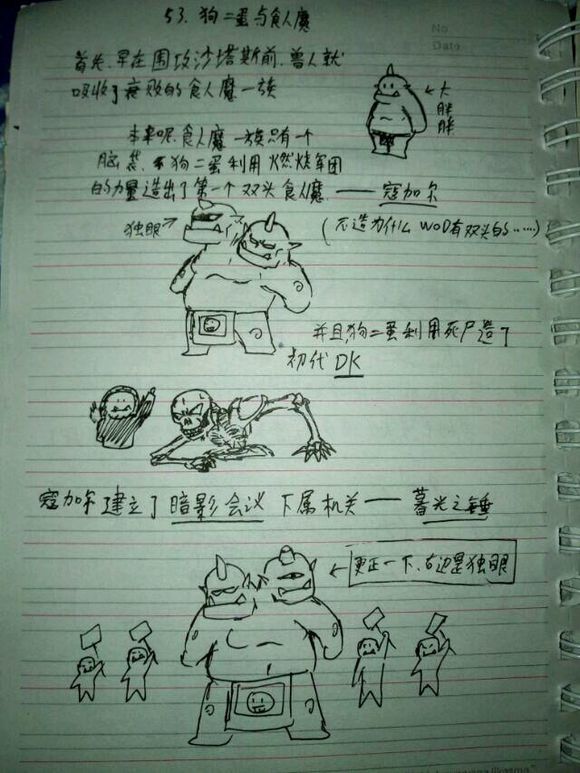 53. 狗二蛋与食人魔
No
Date
首先、早在围攻沙塔斯前、兽人就
吸收了衰败的食人魔一族
←大胖胖
本来呢、食人魔一族只有一个
脑袋、狗二蛋利用燃烧军团
的力量造出了第一个双头食人魔——寇加尔
独眼→
(不造为什么WOD有双头的······)
并且狗二蛋利用死尸造了
初代DK
寇加尔建立了暗影会议下属机关——暮光之锤
←更正一下、右边是独眼